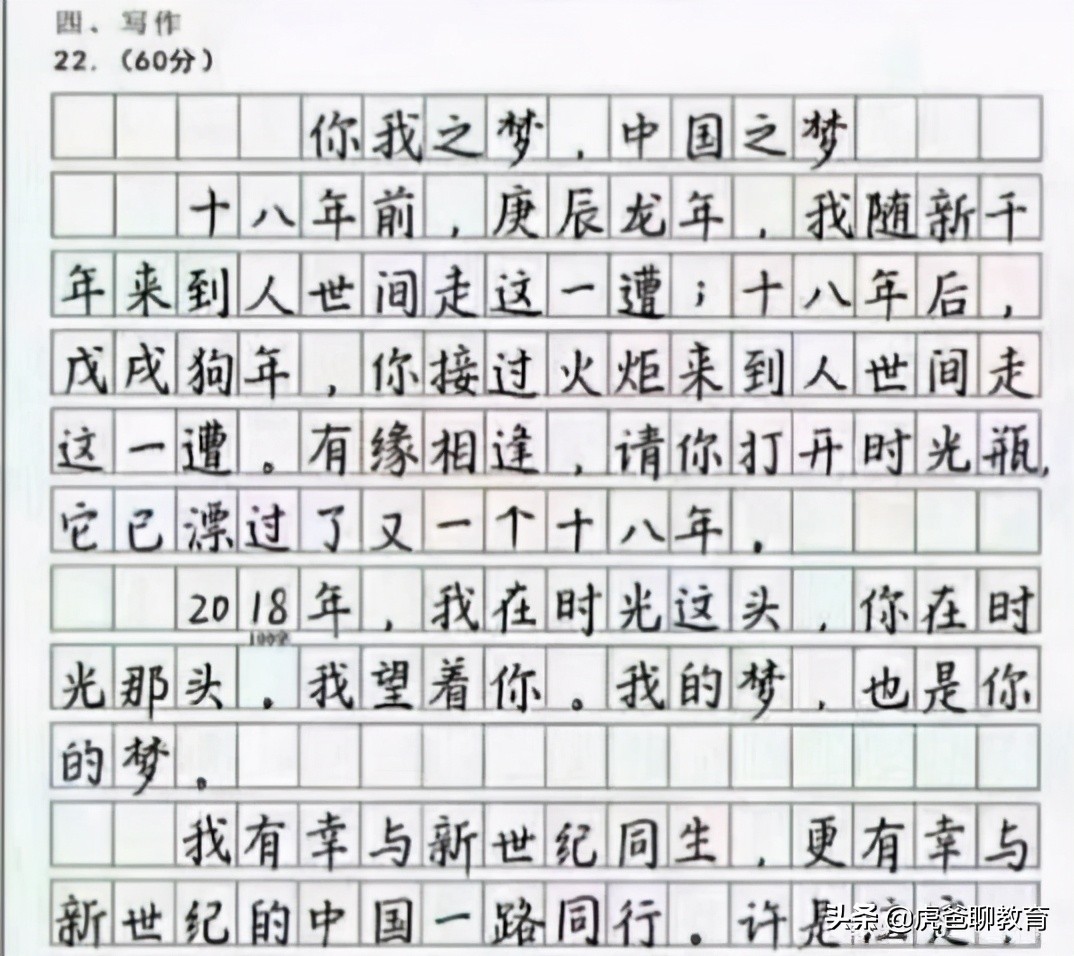 四、写作
22.（60分）
你我之梦，中国之梦
十八年前，庚辰龙年，我随新千
年来到人世间走这一遭；十八年后，
戊戌狗年，你接过火炬来到人世间走
这一遭。有缘相逢，请你打开时光瓶，
它已漂过了又一个十八年。
2018年，我在时光这头，你在时
100字
光那头。我望着你。我的梦，也是你
的梦。
我有幸与新世纪同生，更有幸与
新世纪的中国一路同行。许是
头条 @虎爸聊教育